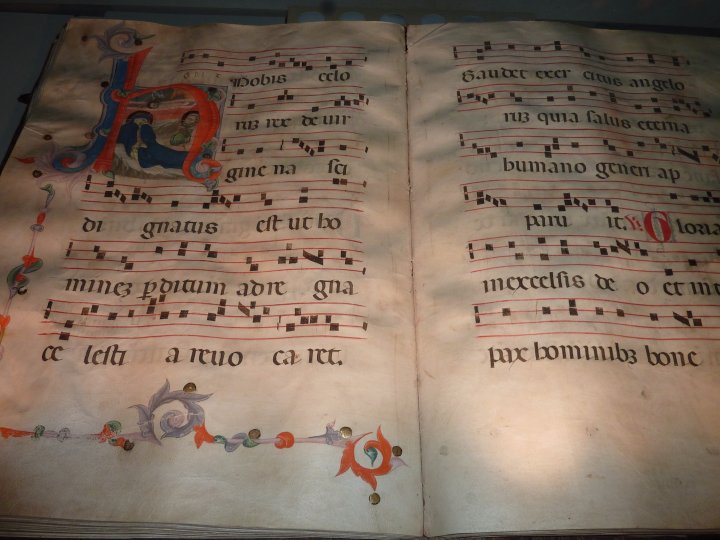 nobis celo
ruz rex de uir
gine na sci
di gnatus est ut ho
minez perditum ad re gna
ce lesti a reuo ca ret.
Gaudet exer citus angelo
ruz quia salus eterna
humano generi ap
paru it. V. Gloria
in excelsis de o et in t
pax hominibz bone